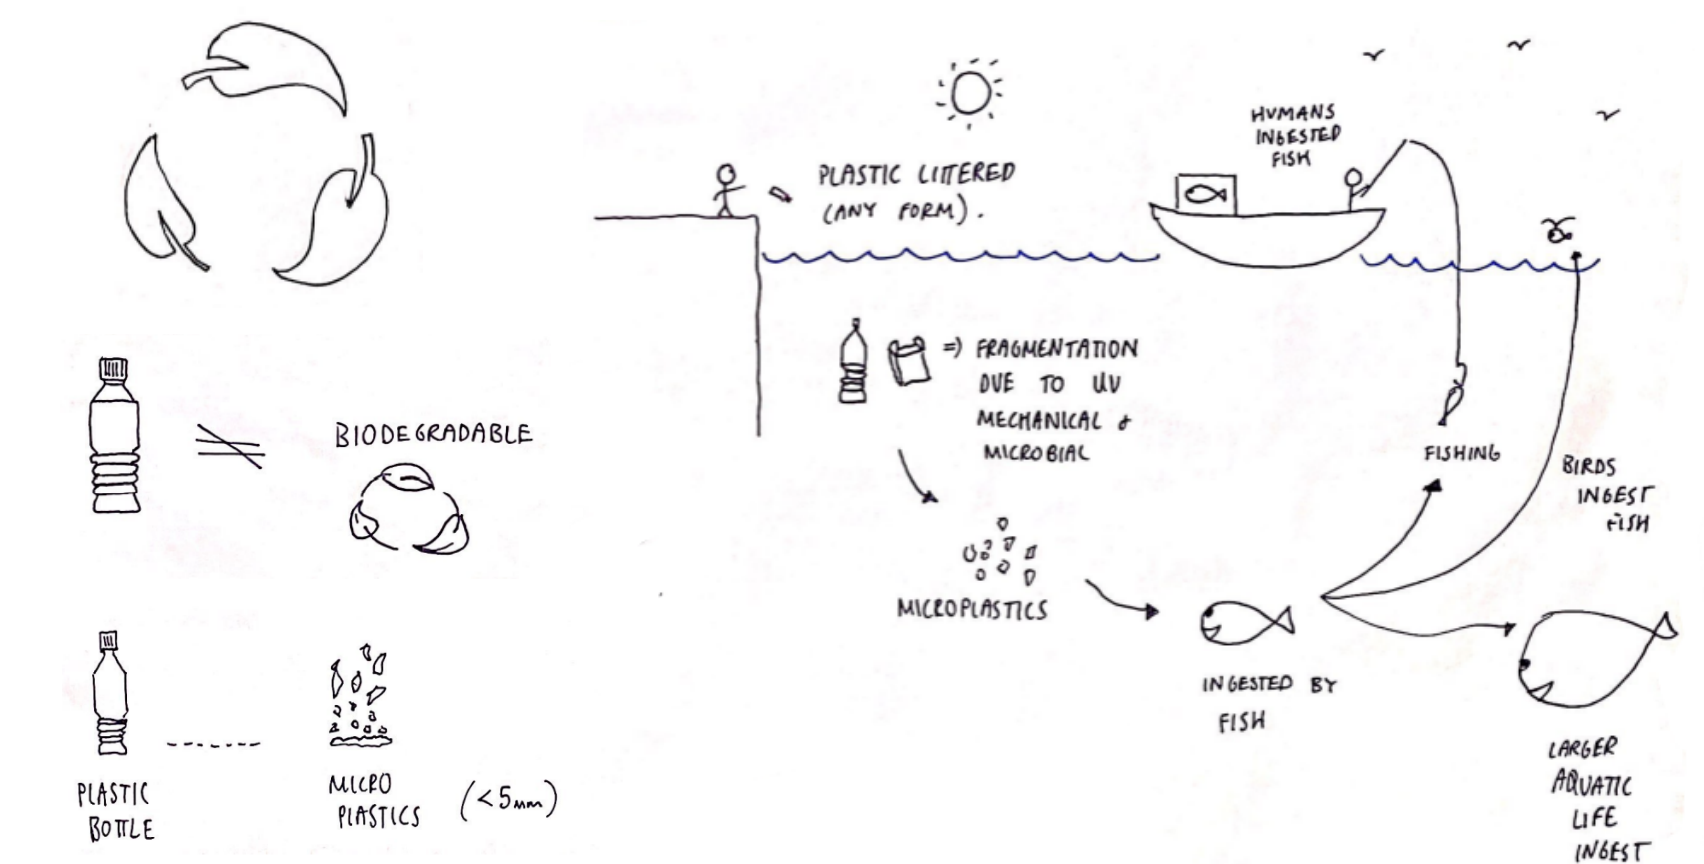 BIODEGRADABLE
PLASTIC
BOTTLE
MICRO
PLASTICS
(<5mm)
PLASTIC LITTERED
(ANY FORM).
HUMANS
INGESTED
FISH
=) FRAGMENTATION
DUE TO UV
MECHANICAL &
MICROBIAL
MICROPLASTICS
INGESTED BY
FISH
FISHING
BIRDS
INGEST
FISH
LARGER
AQUATIC
LIFE
INGEST